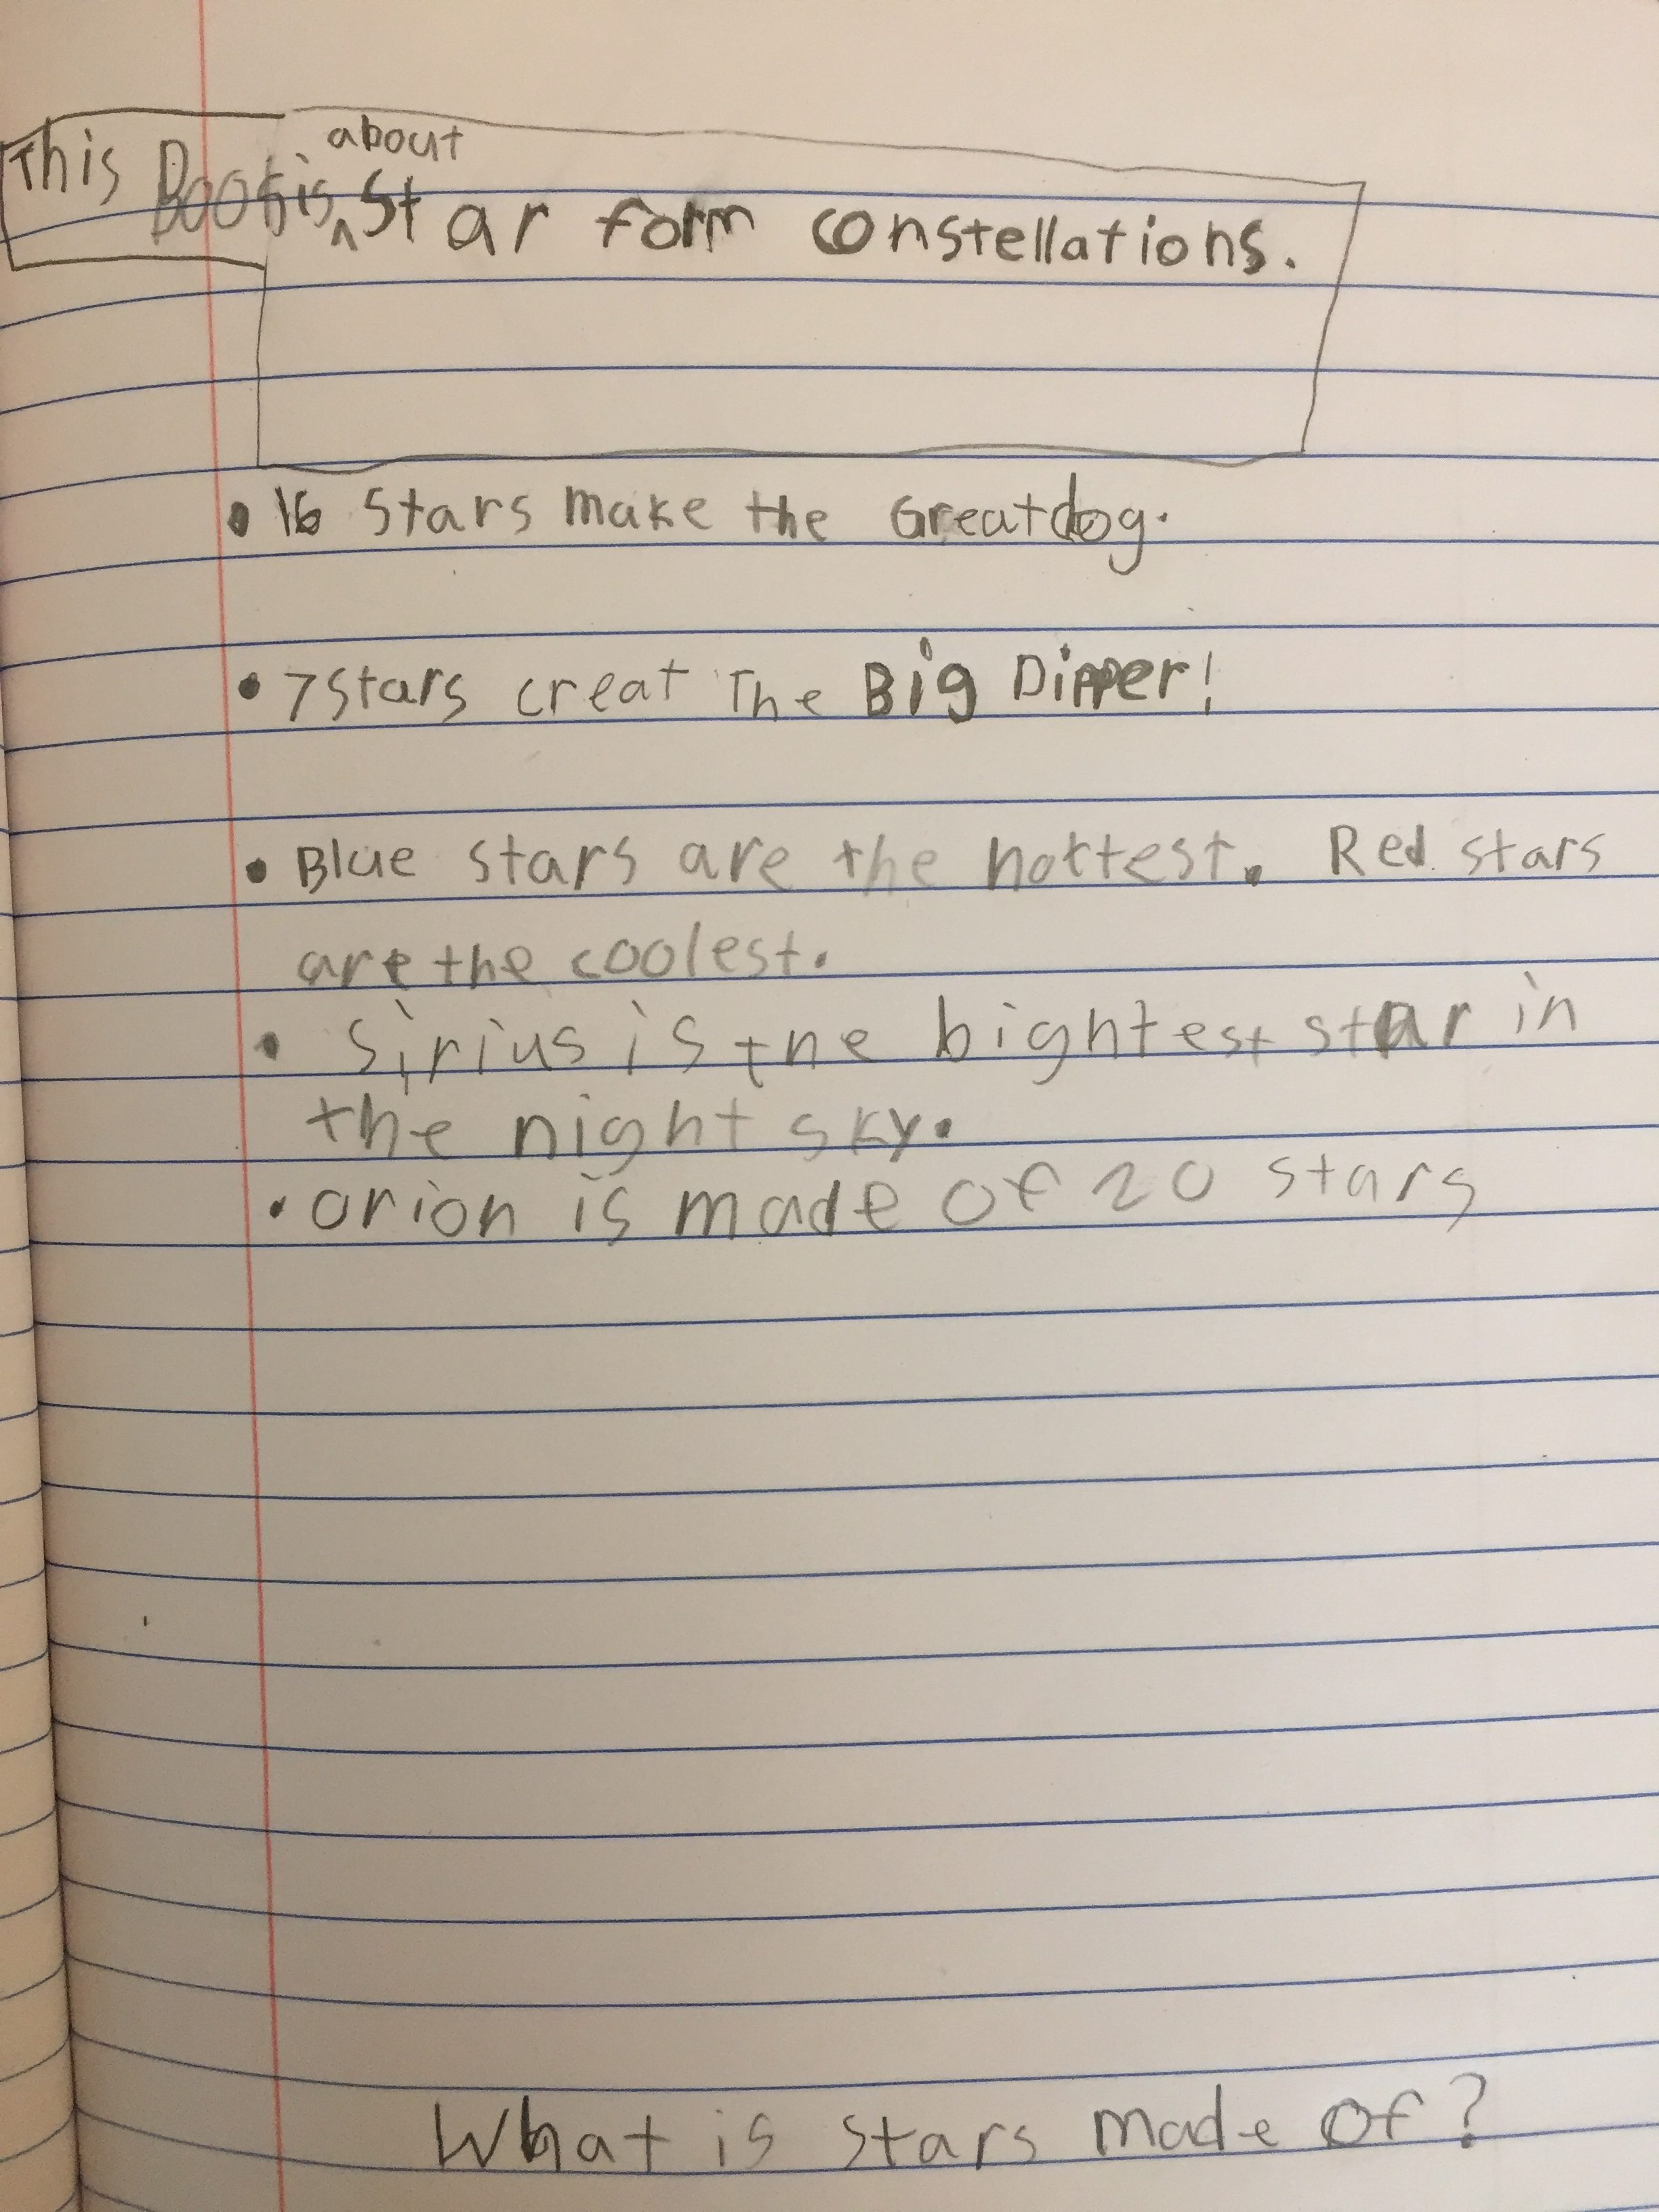 This Book is about Star form constellations.
• 16 Stars make the Great dog.
• 7 stars creat The Big Dipper!
• Blue stars are the hottest. Red stars
are the coolest.
• Sirius is the bightest star in
the night sky.
• orion is made of 20 stars
What is stars made of?